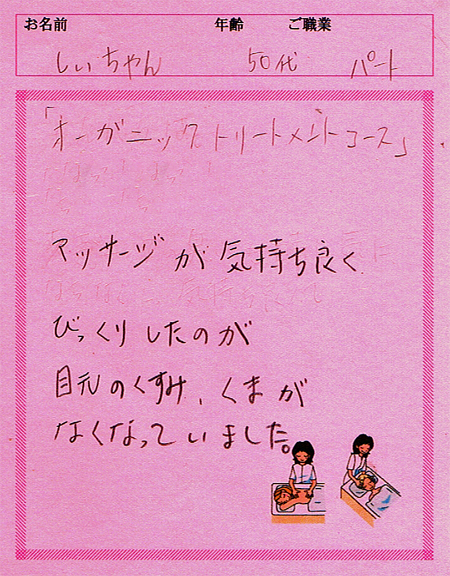 お名前 年齢 ご職業
しぃちゃん 50代 パート
「オーガニックトリートメントコース」
マッサージが気持ち良く
びっくりしたのが
目元のくすみ、くまが
なくなっていました。